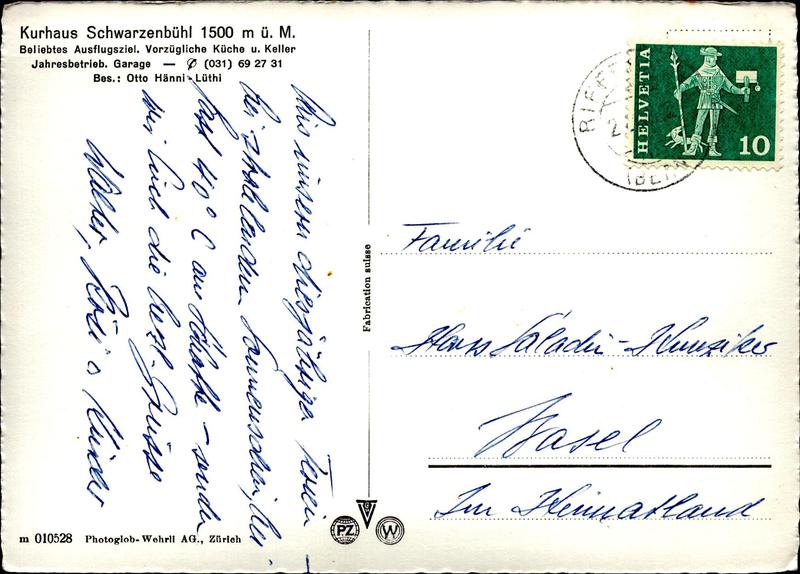 Kurhaus Schwarzenbühl 1500 m ü. M.
Beliebtes Ausflugsziel. Vorzügliche Küche u. Keller
Jahresbetrieb. Garage — ✆ (031) 69 27 31
Bes.: Otto Hänni-Lüthi
Aus unsern diesjährigen Ferien
bei strahlendem Sonnenschein, bei
fast 40°C am Schatten – senden
wir Euch die herzl. Grüsse
Walter, Rösli u. Kinder
Fabrication suisse
HELVETIA
10
(BERN)
Familie
Hans Saladin-Hunziker
Basel
Im Heimatland
m 010528 Photoglob-Wehrli AG., Zürich
PZ
W